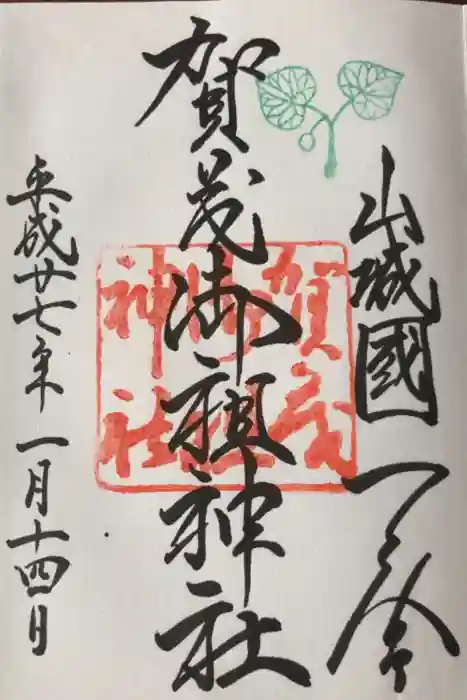 山城國一之宮
賀茂御祖神社
賀茂御祖神社
平成廿七年一月十四日